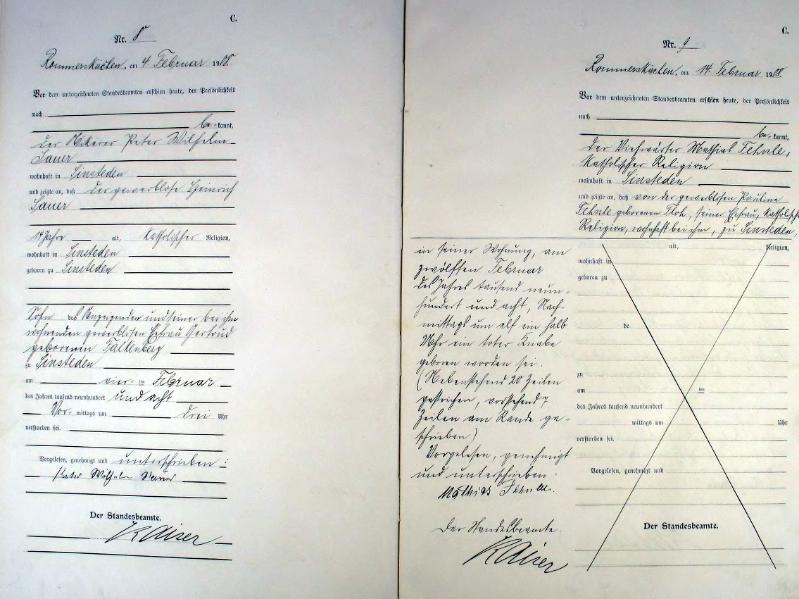 C.
Nr. 8
Rommerskirchen, am 4 Februar 1908.
Vor dem unterzeichneten Standesbeamten erschien heute, der Persönlichkeit
nach
be kannt,
der Ackerer Peter Wilhelm
Sauer
wohnhaft in Sinsteden
und zeigte an, daß der gewerblose Heinrich
Sauer
alt, katholischer Religion,
wohnhaft in Sinsteden
geboren zu Sinsteden
Sohn des Anzeigenden und seiner bei ihm
wohnenden gewerblosen Ehefrau Gertrud
geborenen Falkenberg
in Sinsteden
am vier ten Februar
des Jahres tausend neunhundert und acht
Vor mittags um drei Uhr
verstorben sei.
Vorgelesen, genehmigt und unterschrieben:
Peter Wilhelm Sauer
Der Standesbeamte.
Kaiser
C.
Nr. 9
Rommerskirchen, am 14 Februar 1908.
Vor dem unterzeichneten Standesbeamten erschien heute, der Persönlichkeit
nach
be kannt,
der Viehwärter Mathias
katholischer Religion
wohnhaft in Sinsteden
und zeigte an, daß von der gewerblosen Pauline
geborenen seiner Ehefrau, katholischer
Religion, wohnhaft bei ihm, zu Sinsteden,
in seiner Wohnung, am
zwölften Februar
des Jahres tausend neun-
hundert und acht, Nach-
mittags um elf ein halb
Uhr ein toter Knabe
geboren worden sei.
(Nebenstehend 20 Zeilen
gestrichen, vorstehend 7
Zeilen am Rande ge-
schrieben)
Vorgelesen, genehmigt
und unterschrieben.
Mathias
Der Standesbeamte
Kaiser
alt, Religion,
wohnhaft in
geboren zu
de
zu
am ten
des Jahres tausend neunhundert
mittags um Uhr
verstorben sei.
Vorgelesen, genehmigt und
Der Standesbeamte.